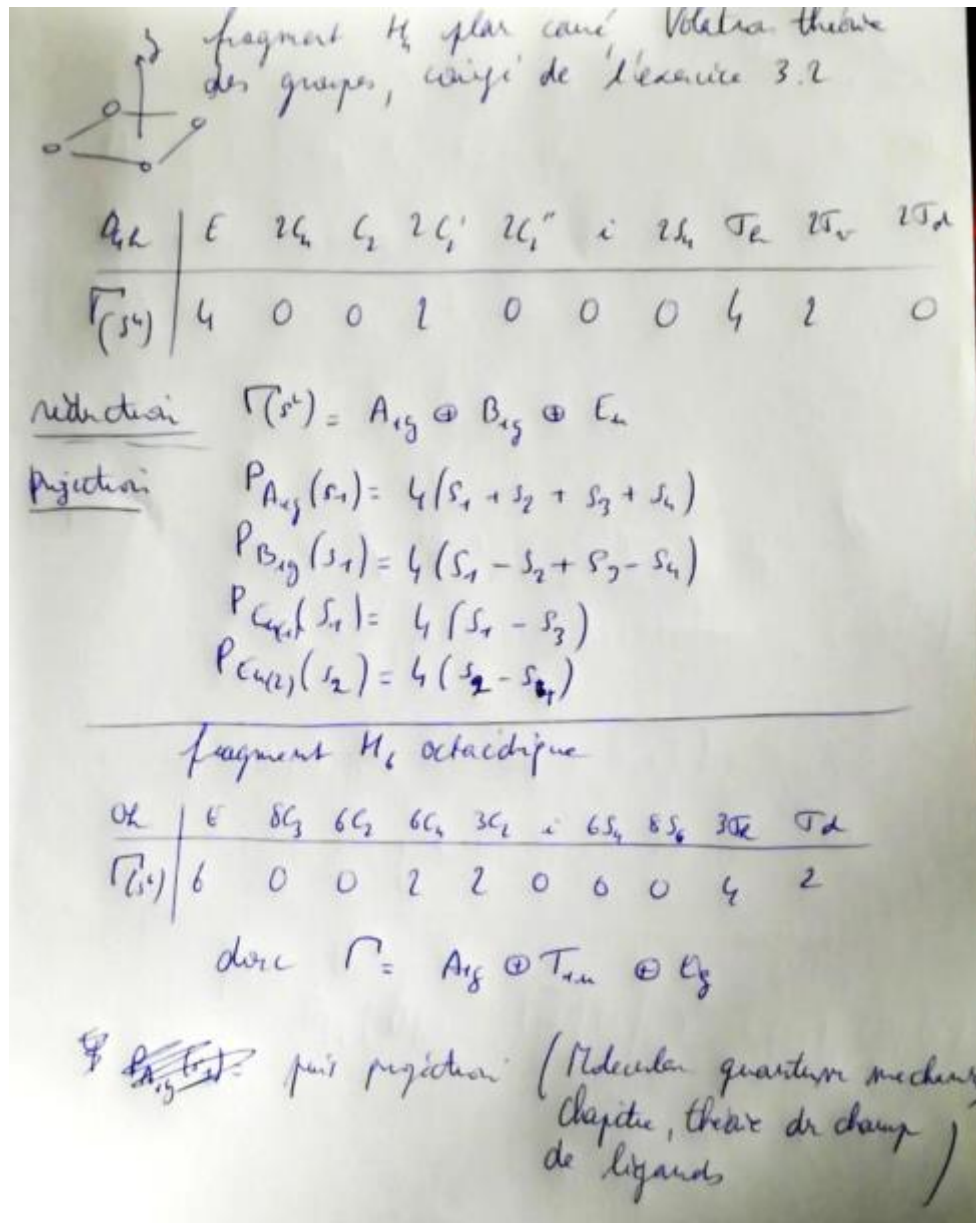 z fragment H₄ plan carré, Volatron théorie
des groupes, corrigé de l'exercice 3.2
D₄h | E 2C₄ C₂ 2C₂' 2C₂'' i 2S₄ σh 2σv 2σd
Γ(s⁴) | 4 0 0 2 0 0 0 4 2 0
réduction Γ(s⁴) = A₁g ⊕ B₁g ⊕ Eu
projection P A₁g (s₁) = 4(s₁ + s₂ + s₃ + s₄)
P B₁g (s₁) = 4(s₁ - s₂ + s₃ - s₄)
P Eu(1) (s₁) = 4(s₁ - s₃)
P Eu(2) (s₂) = 4(s₂ - s₄)
fragment H₆ octaédrique
Oh | E 8C₃ 6C₂ 6C₄ 3C₂ i 6S₄ 8S₆ 3σh σd
Γ(s⁶) | 6 0 0 2 2 0 0 0 4 2
donc Γ = A₁g ⊕ T₁u ⊕ Eg
puis projection (Molecular quantum mechanics
chapitre, théorie du champ
de ligands)